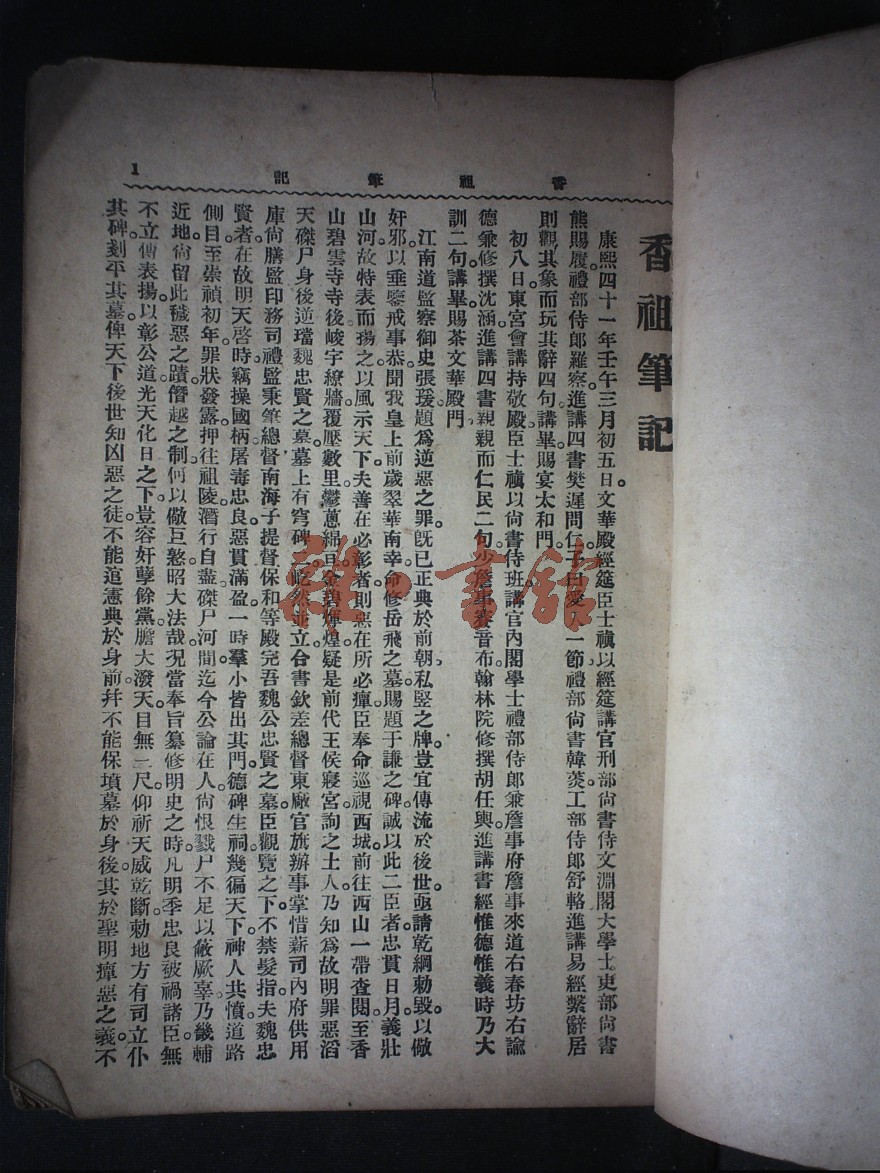 香祖筆記
1
香祖筆記
康熙四十一年壬午三月初五日。文華殿經筵。臣士禛以經筵講官刑部尚書侍文淵閣大學士吏部尚書
熊賜履。禮部侍郎羅察。進講四書樊遲問仁子曰愛人一節。禮部尚書韓菼工部侍郎舒輅進講易經繫辭居
則觀其象而玩其辭四句。講畢賜宴太和門。
初八日。東宮會講持敬殿。臣士禛以尚書侍班。講官內閣學士禮部侍郎兼詹事府詹事來道右春坊右諭
德兼修撰沈涵。進講四書親親而仁民二句。少詹事 音布。翰林院修撰胡任輿。進講書經惟德惟義時乃大
訓二句。講畢。賜茶文華殿門。
江南道監察御史張瑗題。爲逆惡之罪。旣已正典於前朝。私竪之牌。豈宜傳流於後世。亟請乾綱勅毀。以儆
奸邪。以垂鑒戒事。恭聞我皇上前歲翠華南幸。命修岳飛之墓。賜題于謙之碑。誠以此二臣者。忠貫日月。義壯
山河。故特表而揚之。以風示天下。夫善在必彰者。則惡在所必癉。臣奉命巡視西城。前往西山一帶查閱。至香
山碧雲寺。寺後峻宇繚牆。覆壓數里。鬱蔥綿亘。金碧輝煌。疑是前代王侯寢宮。詢之土人。乃知爲故明罪惡滔
天磔尸身後逆璫魏忠賢之墓。墓上有穹碑二。屹然並立。合書欽差總督東廠官旗辦事掌惜薪司內府供用
庫尚膳監印務司禮監秉筆總督南海子提督保和等殿完吾魏公忠賢之墓。臣觀覽之下。不禁髮指。夫魏忠
賢者。在故明天啓時。竊操國柄。屠毒忠良。惡貫滿盈。一時羣小皆出其門。德碑生祠。幾徧天下。神人共憤。道路
側目。至崇禎初年。罪狀發露。押往祖陵。潛行自盡。磔尸河間。迄今公論在人。尙恨戮尸不足以蔽厥辜。乃畿輔
近地。尙留此穢惡之蹟。僭越之制。何以儆巨憝。昭大法哉。況當奉旨纂修明史之時。凡明季忠良被禍諸臣。無
不立傳表揚。以彰公道。光天化日之下。豈容奸孽餘黨。膽大潑天。目無三尺。仰祈天威乾斷。勅地方有司。立仆
其碑。剗平其墓。俾天下後世。知凶惡之徒。不能逭憲典於身前。幷不能保墳墓於身後。其於聖明癉惡之義。不
雜·書館